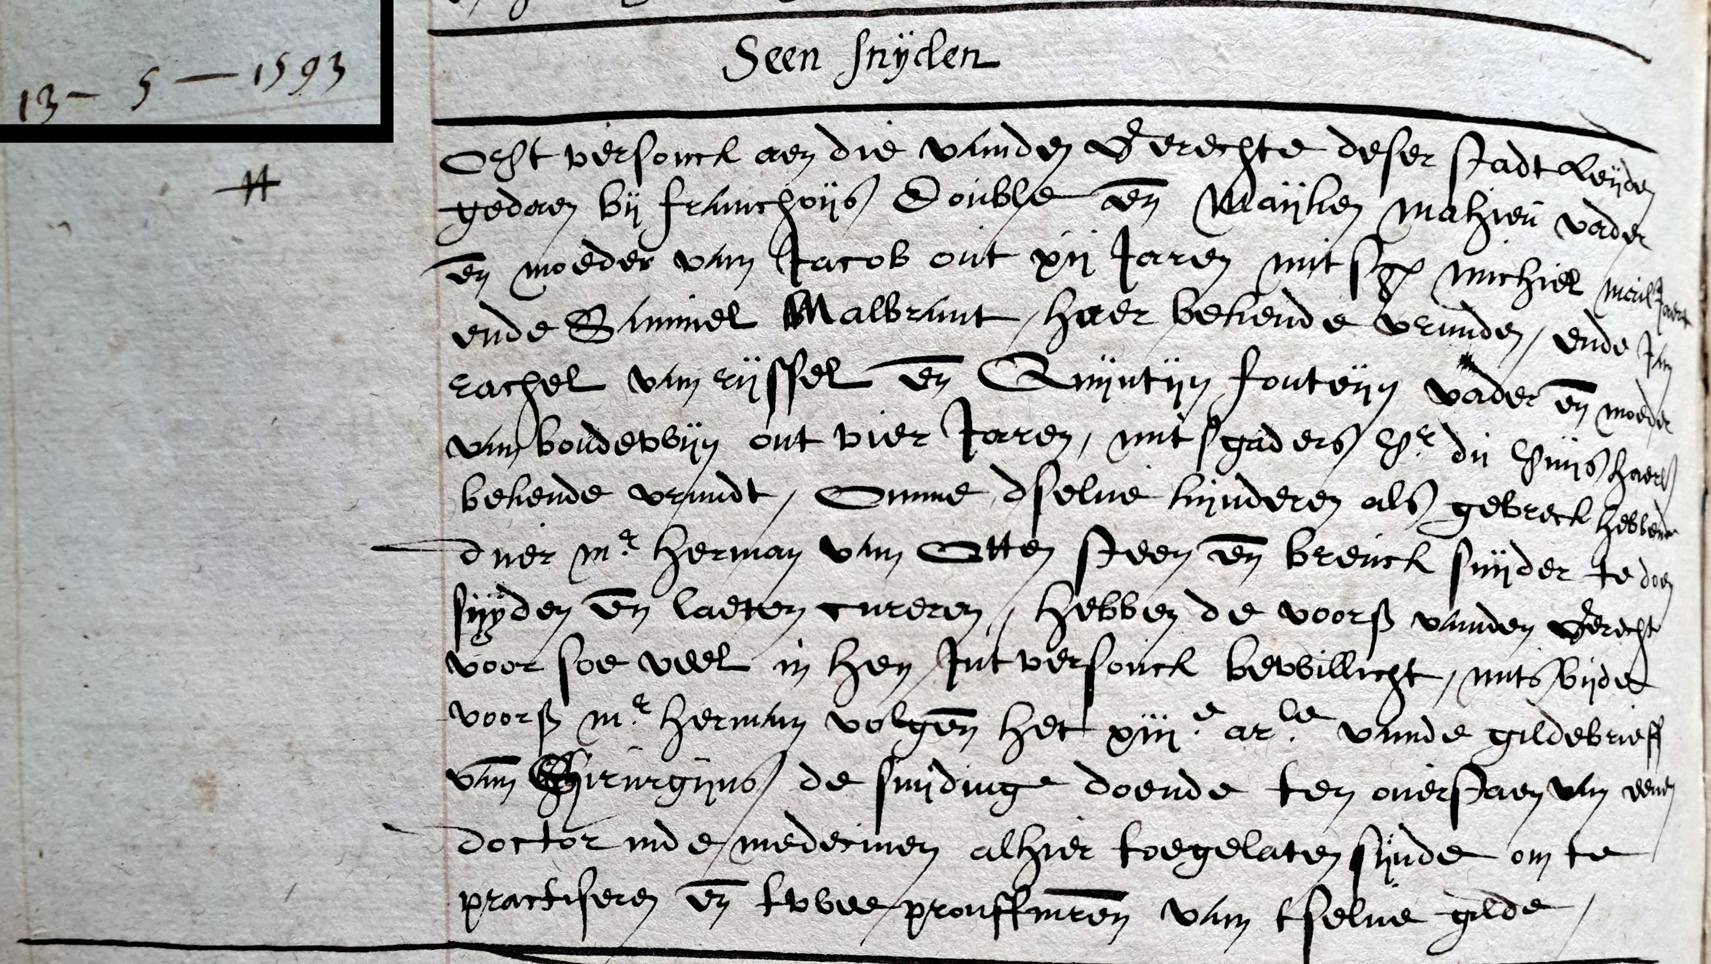 13 - 5 - 1593
Steen snijden
Opt versouck aen die vanden Gerechte deser stadt Leyden
gedaen bij franchoijs Double en Maijken Mahieu vader
en moeder van Jacob out xij Jaren mitsg. Michiel
ende Samuel Malbrant, haer bekende vrunden, ende Jan
rachel van rijssel en Quijntijn fonteijn vader en moeder
van boudewijn out vier Jaren, mitsgaders Pr. du haers
bekende vrundt, Omme dselve kijnderen als gebreck hebbende
duer mr. herman van Otten steen en breuck snijder te doen
snijden en laeten cureren, hebben de voors vanden Gerecht
voor soe veel in hen Int versouck bewillicht, mits bijde
voors mr. herman volgen het xiije arle vande gildebrieff
van Chirurgijns, de snijdinge doende ten overstaen van eenen
doctor inde medecinen alhier toegelaten sijnde om te
practiseren en twee prouffmren van tselve gilde,